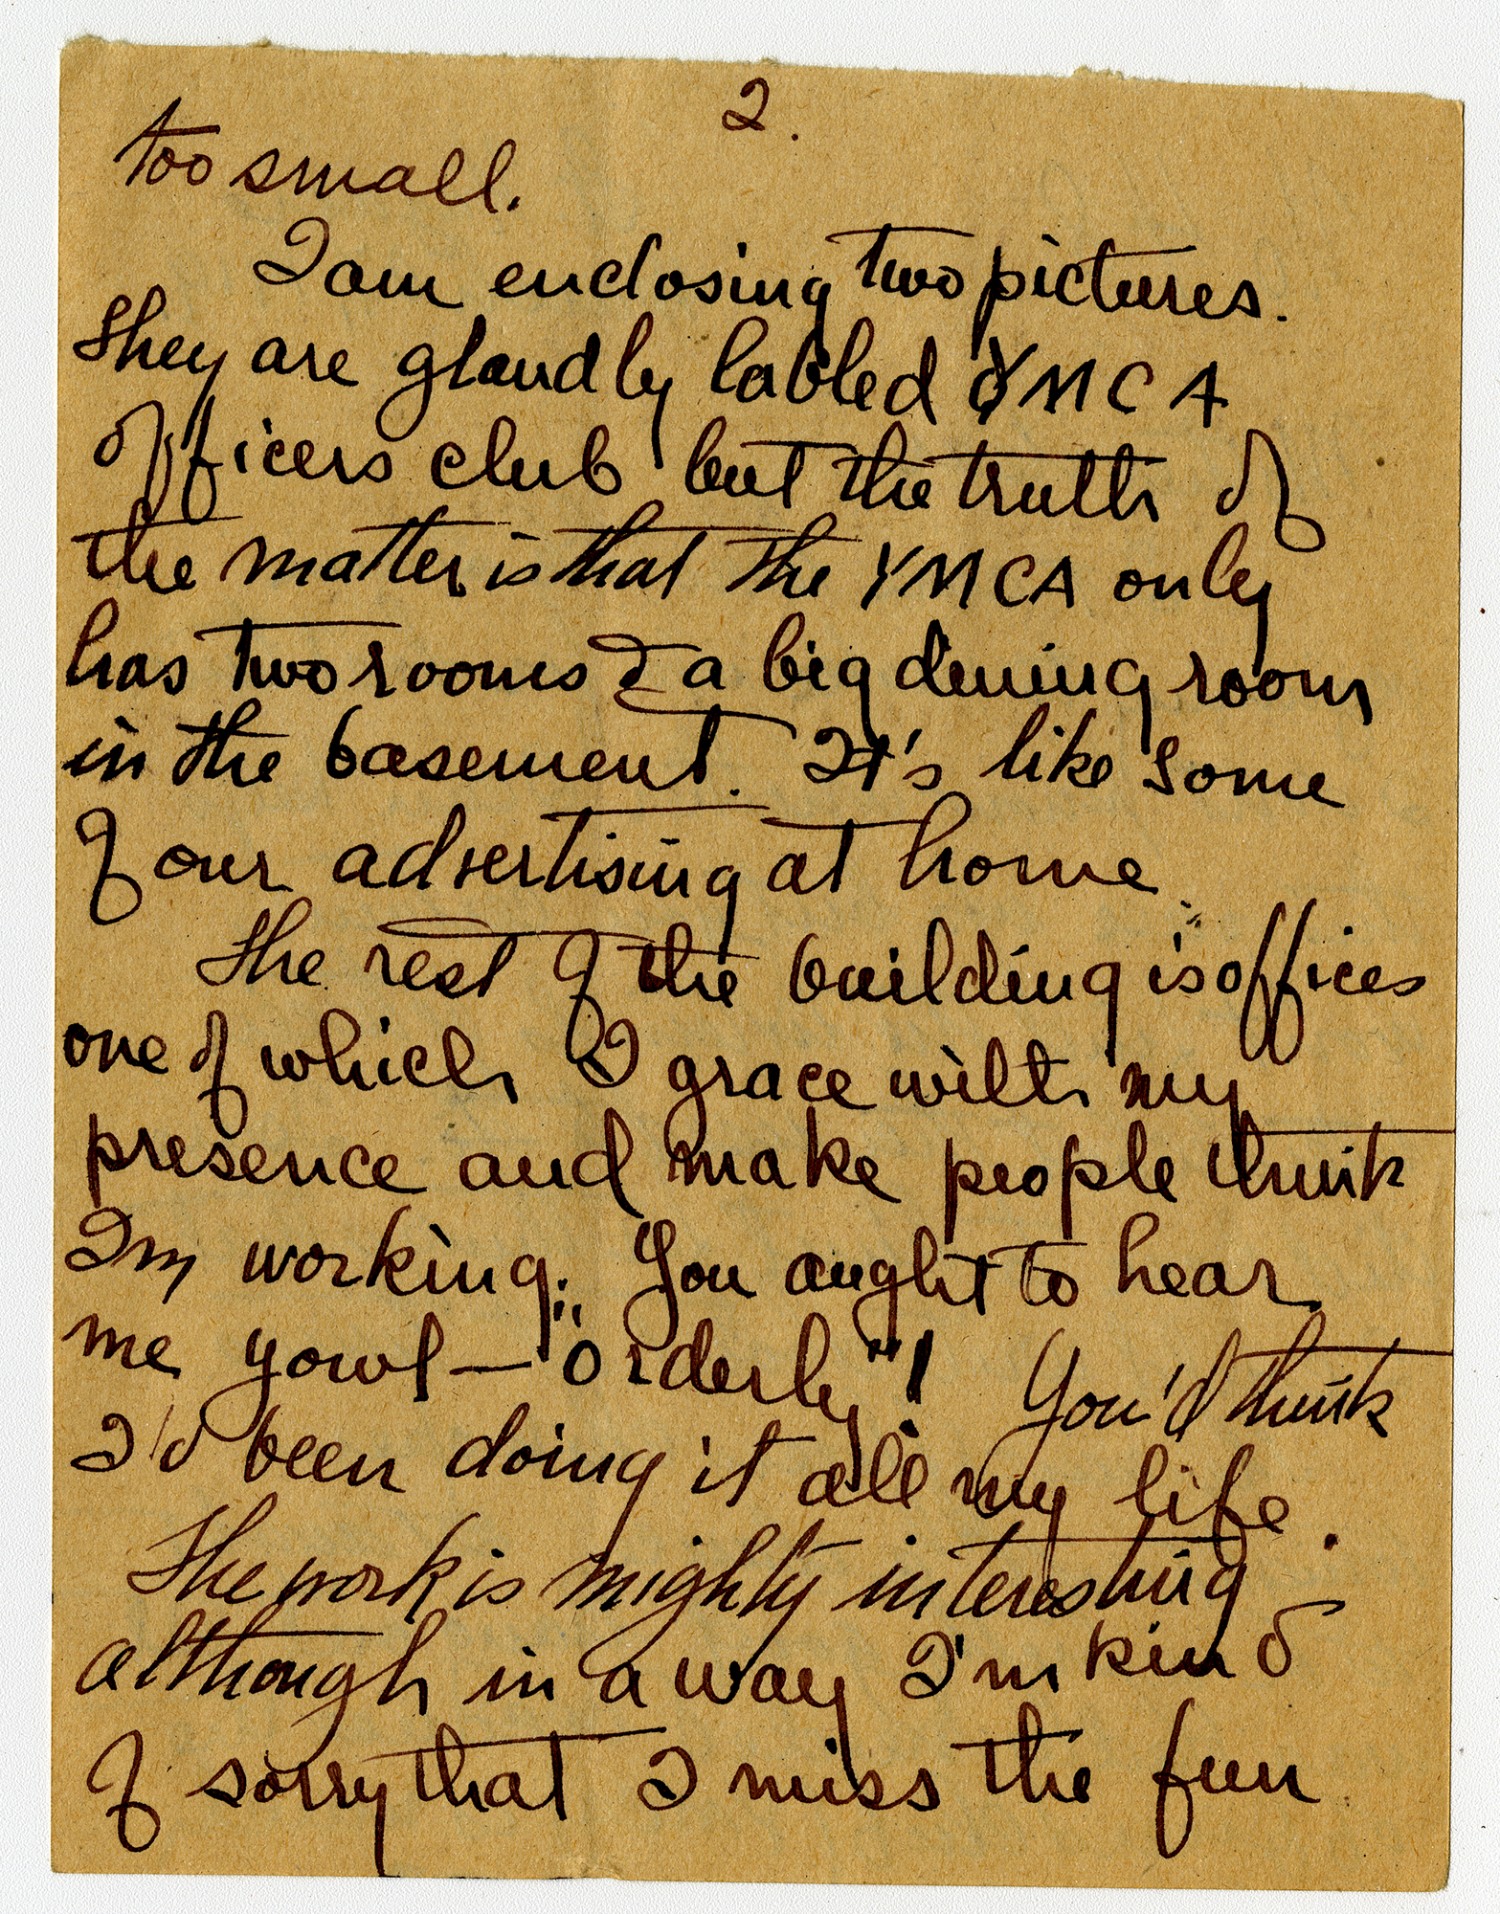 2.
too small.
I am enclosing two pictures.
They are glandly labled YMCA
officers club but the truth of
the matter is that the YMCA only
has two rooms & a big dining room
in the basement. It's like some
of our advertising at home.
The rest of the building is offices
one of which I grace with my
presence and make people think
Im working. You aught to hear
me yowl — "Orderly"! You'd think
I'd been doing it all my life.
The work is mighty interesting
although in a way I'm kind
of sorry that I miss the fun